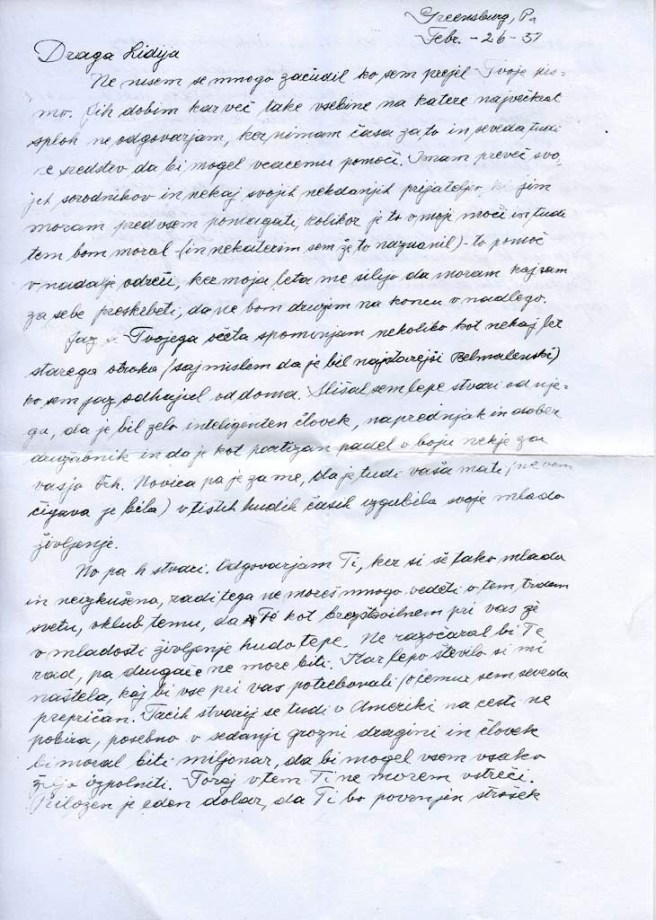 Greensburg, Pa
Febr. - 26 - 51
Draga Lidija
Ne nisem se mnogo začudil ko sem prejel Tvoje pis-
mo. Jih dobim kar več take vsebine na katere največkrat
sploh ne odgovarjam, ker nimam časa za to in seveda tudi
ne sredstev da bi mogel vsacemu pomoči. Imam preveč svo-
jih sorodnikov in nekaj svojih nekdanjih prijateljev, ki jim
moram predvsem pomagati, kolikor je to v moji moči in tudi
tem bom moral (in nekaterim sem že to naznanil) - to pomoč
v nadalje odreči, ker moja leta me silijo da moram kaj sam
za sebe preskrbeti, da ne bom drugim na koncu v nadlego.
Jaz se Tvojega očeta spominjam nekoliko kot nekaj let
starega otroka (saj mislem da je bil najstarejši Belmalenski)
ko sem jaz odhajal od doma. Slišal sem lepe stvari od nje-
ga, da je bil zelo inteligenten človek, naprednjak in dober
družabnik in da je kot partizan padel v boju nekje za
vasjo Vrh. Novica pa je za me, da je tudi vaša mati (ne vem
čigava je bila) v tistih hudih časih izgubila svoje mlado
življenje.
No pa k stvari. Odgovarjam Ti, ker si še tako mlada
in neizkušena, radi tega ne moreš mnogo vedeti o tem, trdem
svetu, vkljub temu, da Te kot brezštoilnem pri vas že
v mladosti življenje hudo tepe. Ne razočaral bi Te
rad, pa drugače ne more biti. Kar lepo število si mi
naštela, kaj bi vse pri vas potrebovali, o čemur sem seveda
prepričan. Tacih stvarij se tudi v Ameriki na cesti ne
pobira, posebno v sedanji grozni draginji in človek
bi moral biti miljonar, da bi mogel vsem vsako
željo izpolniti. Torej v tem Ti ne morem vstreči.
Priložen je eden dolar, da Ti bo povrnjen strošek